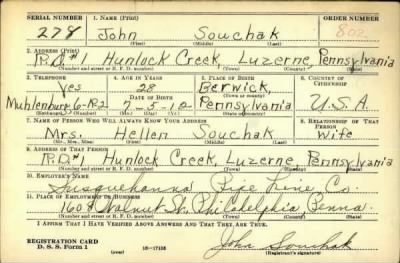 SERIAL NUMBER 1. NAME (Print) ORDER NUMBER
278 John Souchak 802
(First) (Middle) (Last)
2. ADDRESS (Print)
R.D.#1 Hunlock Creek, Luzerne, Pennsylvania
(Number and street or R. F. D. number) (Town) (County) (State)
3. TELEPHONE 4. AGE IN YEARS 5. PLACE OF BIRTH 6. COUNTRY OF CITIZENSHIP
Yes 28 Berwick,
DATE OF BIRTH (Town or county)
Muhlenburg 6-R2 7-5-12 Pennsylvania U.S.A.
(Exchange) (Number) (Mo.) (Day) (Yr.) (State or country)
7. NAME OF PERSON WHO WILL ALWAYS KNOW YOUR ADDRESS 8. RELATIONSHIP OF THAT PERSON
Mrs. Hellen Souchak Wife
(Mr., Mrs., Miss) (First) (Middle) (Last)
9. ADDRESS OF THAT PERSON
R.D.#1 Hunlock Creek, Luzerne, Pennsylvania
(Number and street or R. F. D. number) (Town) (County) (State)
10. EMPLOYER'S NAME
Susquehanna Pipe Line Co.
11. PLACE OF EMPLOYMENT OR BUSINESS
1608 Walnut St. Philadelphia Penna.
(Number and street or R. F. D. number) (Town) (County) (State)
I AFFIRM THAT I HAVE VERIFIED ABOVE ANSWERS AND THAT THEY ARE TRUE.
REGISTRATION CARD
D. S. S. Form 1 (over) 16—17105 John Souchak
(Registrant's signature)